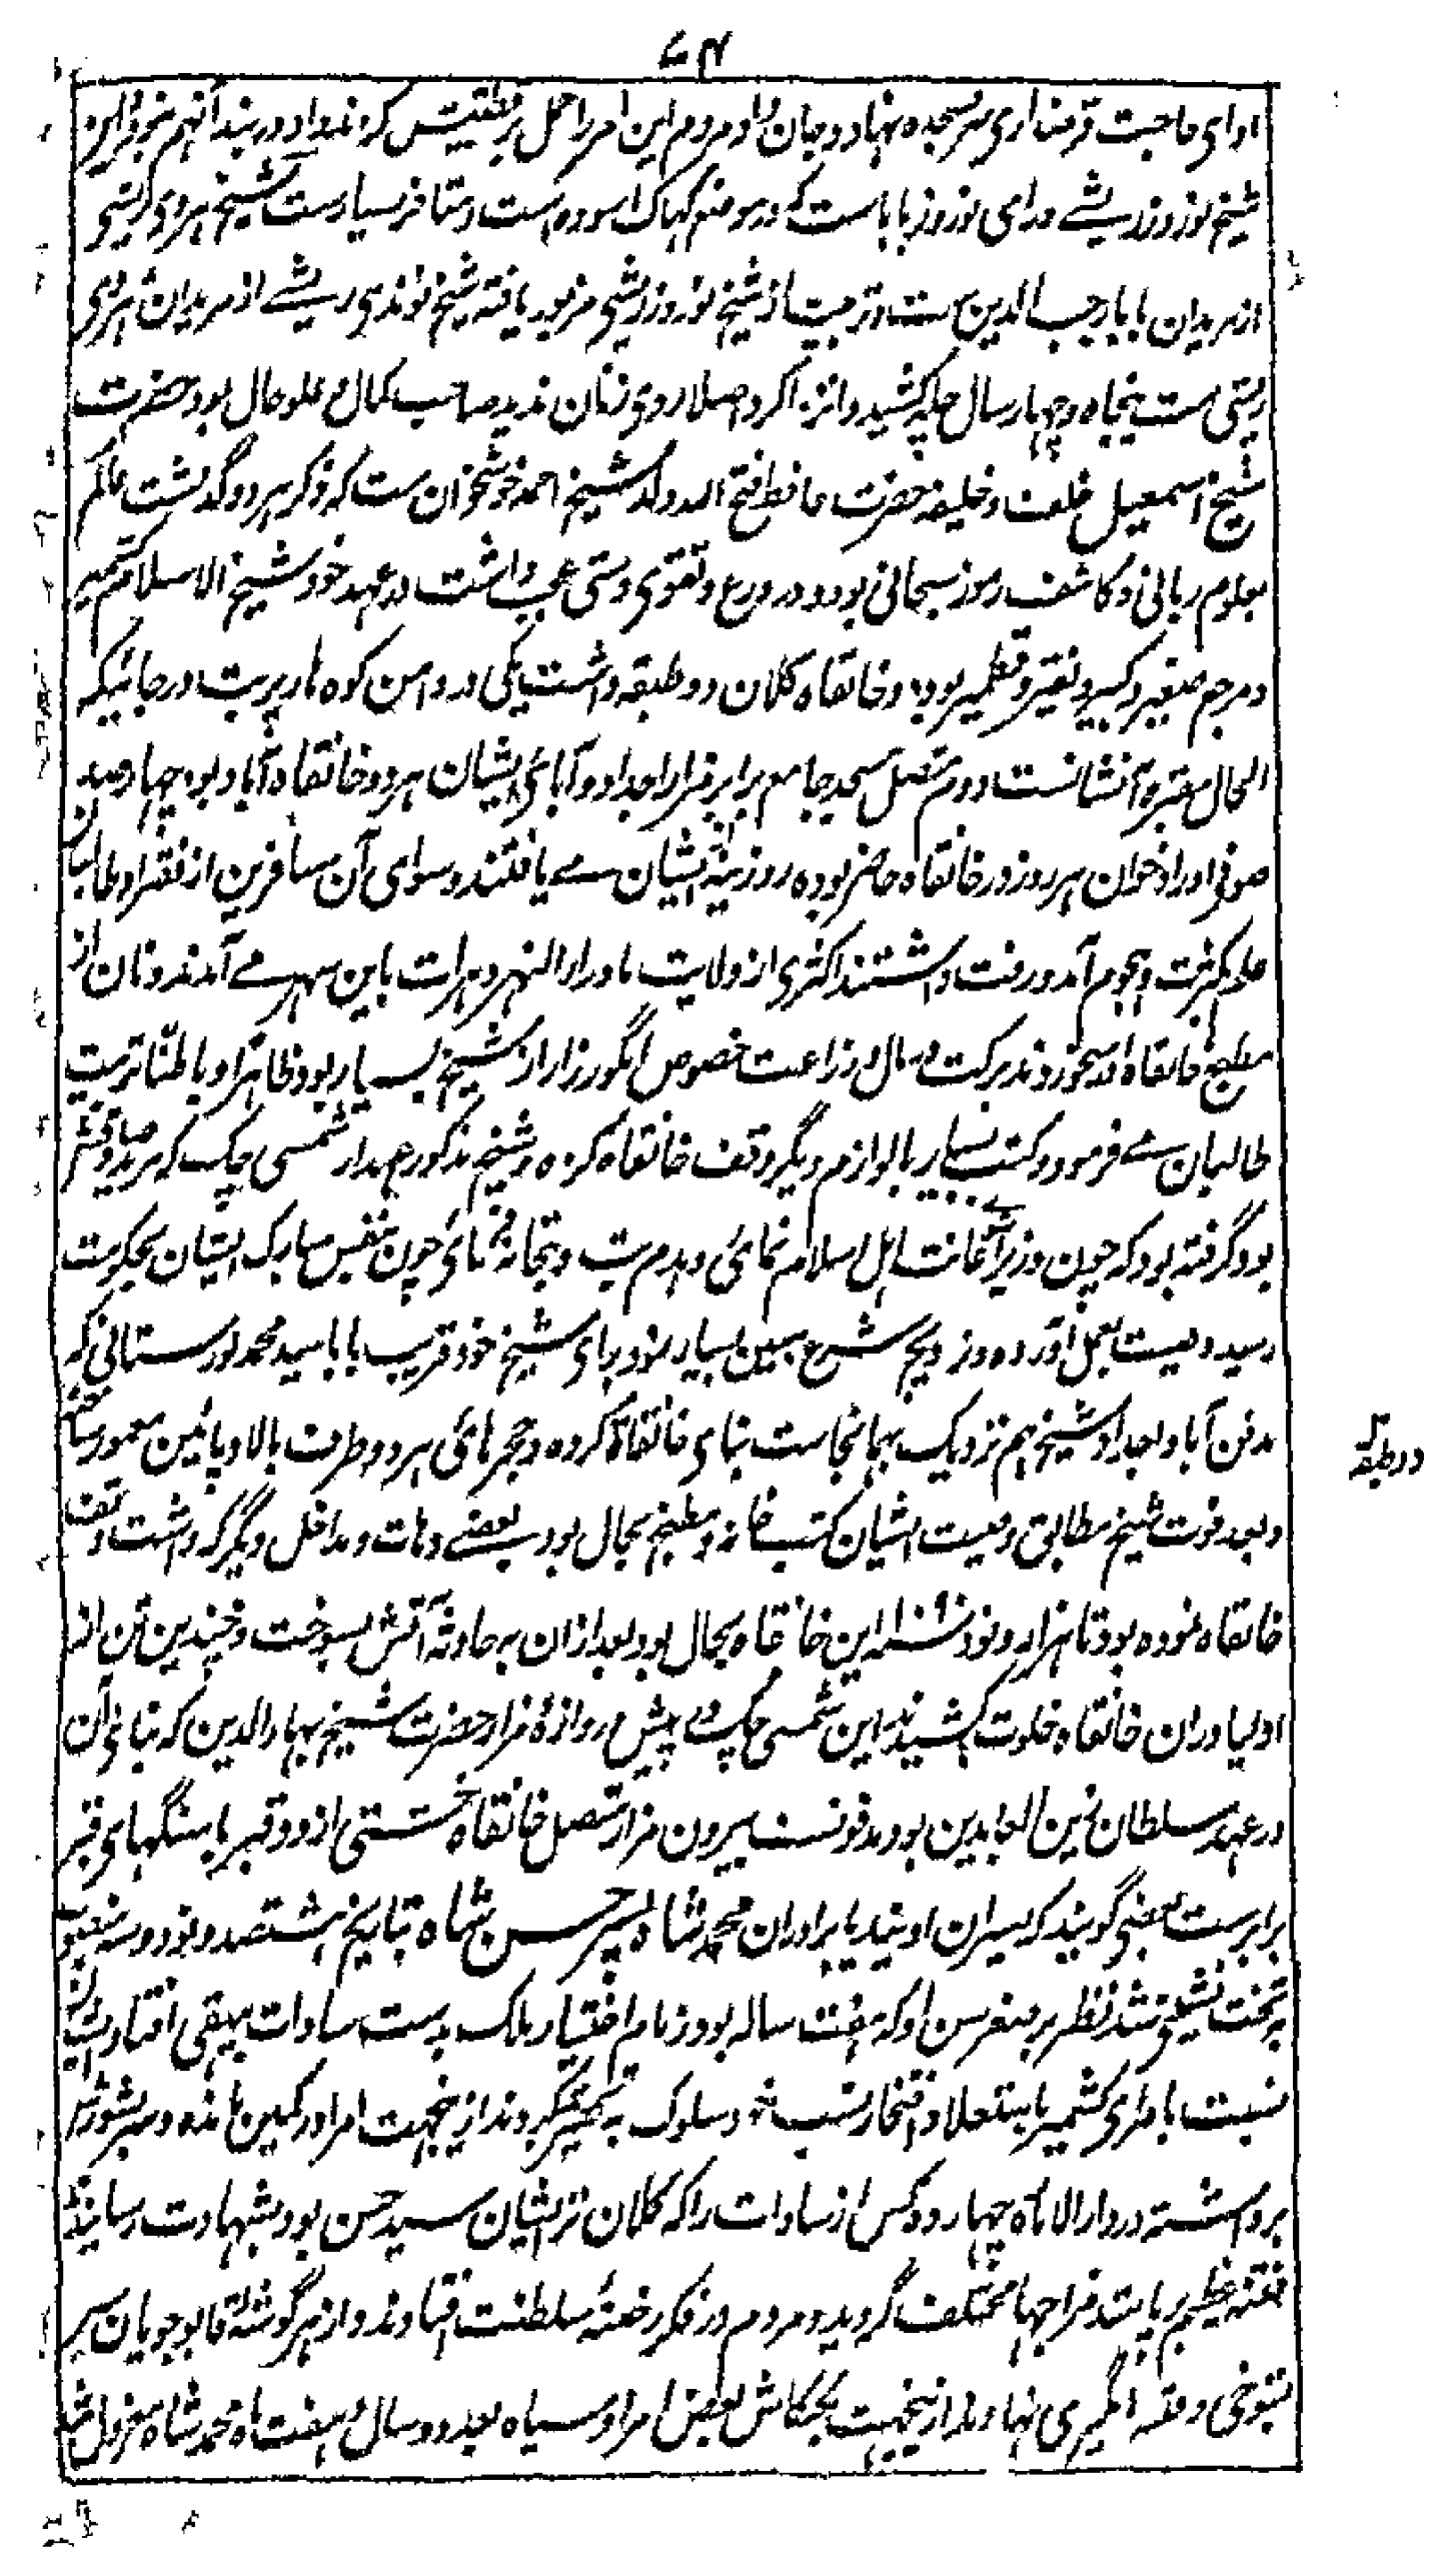 ۷۴
ادای حاجت قرضداری سر بسجده نهاد و جان داد مردم این امر را حمل بر
شیخ نوروز ریشے ورای نوروز باباست که در موضع آسوده است و متاخر بسیارست شیخ هردی ریشی
از مریدان بابا رجب الدین ست و تربیت از شیخ نوروز ریشی مزبور یافته شیخ نوندی ریشے از مریدان هردی
ریشی ست پنجاه و چهار سال چله کشید و انزوا کرد اصلا روی زنان ندید صاحب کمال و علو حال بود حضرت
شیخ اسمعیل خلف و خلیفه حضرت حافظ فتح الله ولد شیخ احمد خوشخوان ست که ذکر هر دو گذشت عالم
بعلوم ربانی و کاشف رموز سبحانی بود و در ورع و تقوی دستی عجب داشت در عهد خود شیخ الاسلام کشمیر
و مرجع صغیر و کبیر و نقیر و قطمیر بود و خانقاه کلان دو طبقه داشت یکی در دامن کوه ماربربت در جائیکه
الحال مقبره آنشانست دوم متصل مسجد جامع برابر مزار اجداد و آبای ایشان هر دو خانقاه آباد بود چهار صد تن
صوفی اوراد خوان هر روز در خانقاه حاضر بوده روزینه از ایشان مے یافتند و سوای آن مسافرین از فقرا و طالبان
علم بکثرت و هجوم آمد و رفت داشتند اکثری از ولایت ماوراء النهر و هرات باین شهر مے آمدند و نان از
مطبخ خانقاه او میخوردند برکت در مال و زراعت خصوص انگورزار از شیخ بسیار بود ظاهرا و باطنا تربیت
طالبان مے فرمود و کتب بسیار با لوازم دیگر وقف خانقاه کرده و شیخ مذکور عهد از شمسی چک که مرید صادقش
بود گرفته بود که چون وزیر شوی اعانت اهل اسلام نمائی و هدم بت و بتخانه نمائی چون بنفس مبارک ایشان بحکومت
رسید وصیت بعمل آورده و ترویج شرع مبین بسیار نمود برای شیخ خود قریب بابا سید محمد نورستانی که
مدفن آبا و اجداد شیخ هم نزدیک بهمانجاست بنای خانقاه کرده و حجرهای هر دو طرف بالا و پائین معمور ساخته
در طبقه
و بعد فوت شیخ مطابق وصیت ایشان کتب خانه و مطبخ بحال بود بعضے دهات و مداخل دیگر که داشت وقف
خانقاه نموده بود تا هزار و نود این خانقاه بحال بود بعد از آن به حادثه آتش بسوخت و چندین تن از
اولیا در آن خانقاه خلوت کشیدند این شمسی چک پیش دروازه مزار حضرت شیخ بهاء الدین که بنای آن
در عهد سلطان زین العابدین بود مدفونست بیرون مزار متصل خانقاه خشتی از دو قبر با سنگهای قبر
برابرست بعضی گویند که پسران اویند یا برادران محمد شاه پسر حسن شاه بتاریخ هشتصد و نود و سه
به تخت نشیں شد نظر بر صغر سن او که هفت ساله بود زمام اختیار ملک بدست سادات بیهقی افتاد ایشان
نسبت بامرای کشمیر باستعلا و افتخار نسب سلوک به تحقیر میکردند ازینجهت امرا در کمین مانده و سر بشورش
برداشته در دار الاماره چهارده کس از سادات را که کلان تر ایشان سید حسن بود بشهادت رسانیدند
فتنه عظیم برپا شد مزاجها مختلف گردید و مردم در فکر رخنه سلطنت افتادند و از هر گوشه قابو جویان سر
بشوخی و فتنه انگیزی نهادند ازینجهت بکنکاش بعضی امرا و سپاه بعد دو سال و هفت ماه محمد شاه معزول شد